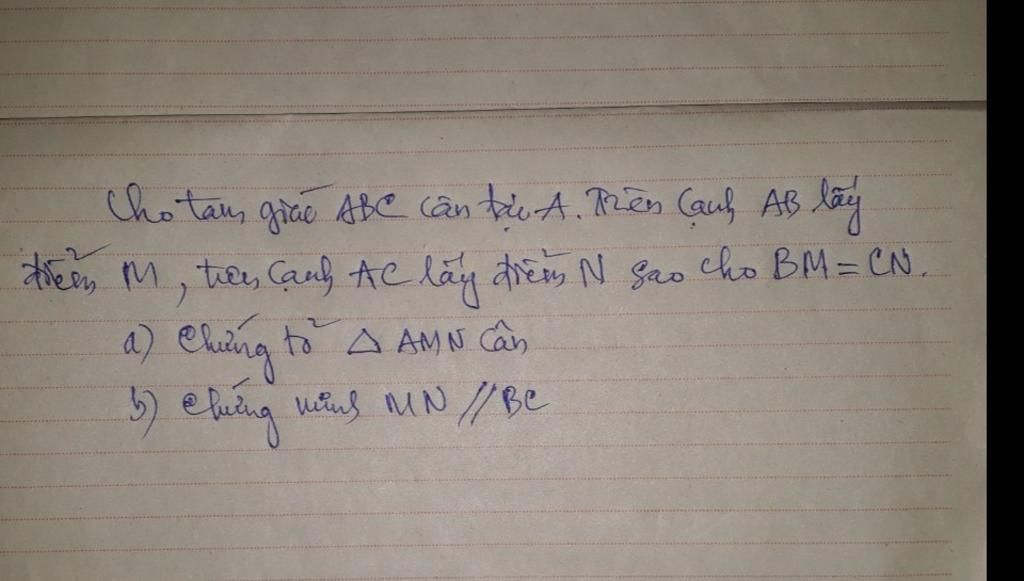 Cho tam giác ABC cân tại A. Trên cạnh AB lấy
điểm M, trên cạnh AC lấy điểm N sao cho BM = CN.
a) Chứng tỏ △ AMN cân
b) Chứng minh MN // BC